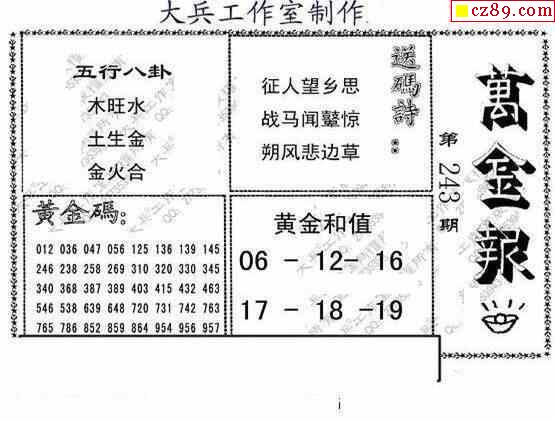 大兵工作室制作
cz89.com
五行八卦
木旺水
土生金
金火合
送碼詩：
征人望乡思
战马闻鼙惊
朔风悲边草
萬金報
第243期
黃金碼：
012 036 047 056 125 136 139 145
246 238 258 269 310 320 330 345
340 368 387 389 403 415 432 463
546 538 639 648 720 731 742 763
765 786 852 859 864 954 956 957
黄金和值
06 - 12- 16
17 - 18 -19
i